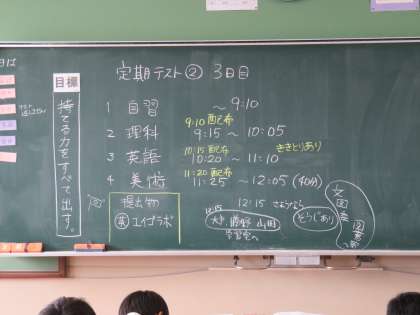 定期テスト② 3日目
目標
持てる力をすべて出す。
1 自習 ～9:10
9:10 配布
2 理科 9:15 ～ 10:05
10:15 配布 ききとりあり
3 英語 10:20 ～ 11:10
11:20 配布
4 美術 11:25 ～ 12:05 (40分)
提出物
英 エイゴラボ
12:15 さようなら
12:15
学習室へ
そうじあり